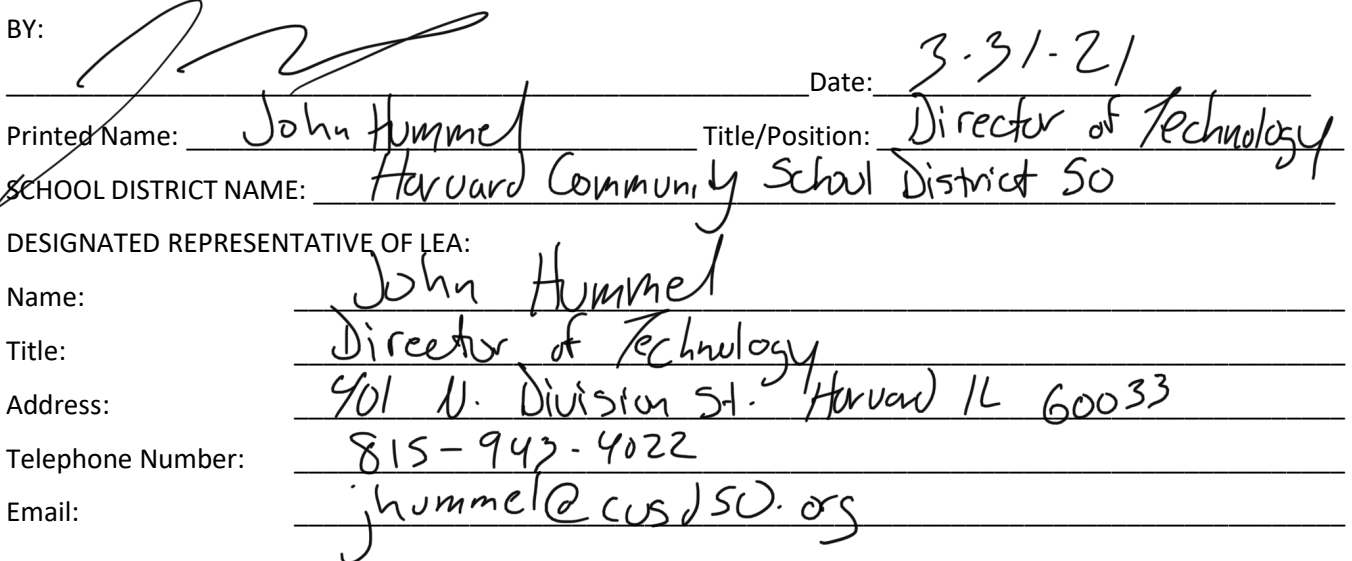 BY:
Date: 3-31-21
Printed Name: John Hummel Title/Position: Director of Technology
SCHOOL DISTRICT NAME: Harvard Community School District 50
DESIGNATED REPRESENTATIVE OF LEA:
Name: John Hummel
Title: Director of Technology
Address: 401 N. Division St. Harvard IL 60033
Telephone Number: 815-943-4022
Email: jhummel@cusd50.org